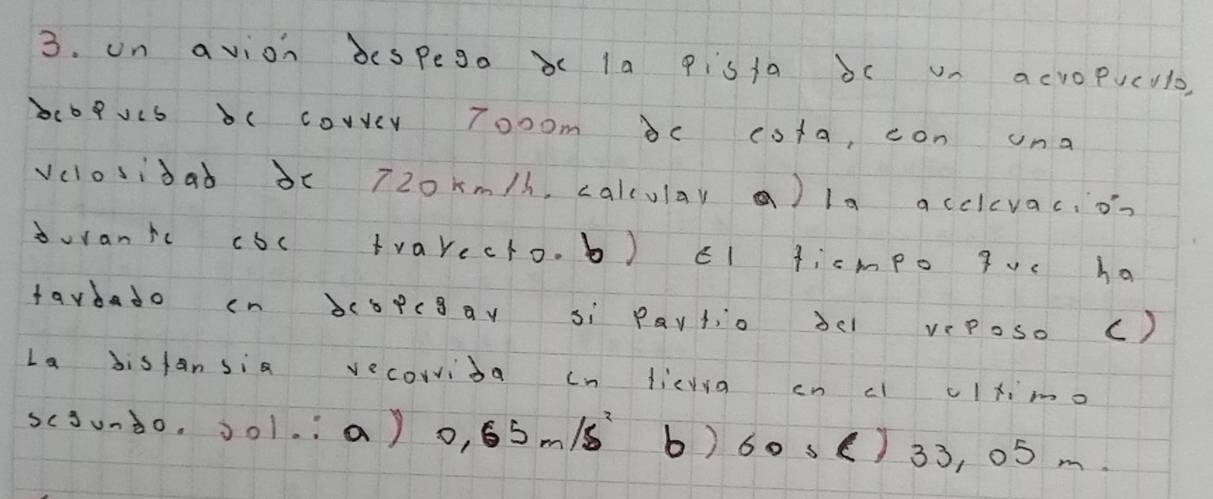 3. un avión despega de la pista de un aeropuerto,
despues de correr 7000m de esta, con una
velosidad de 720 km/h. calcular a) la aceleración
durante ese trayecto. b) El tiempo que ha
tardado en despegar si partio del reposo c)
La distansia recorrida en tierra en el ultimo
segundo. sol.: a) 0,65 m/s² b) 60 s c) 33,05 m.